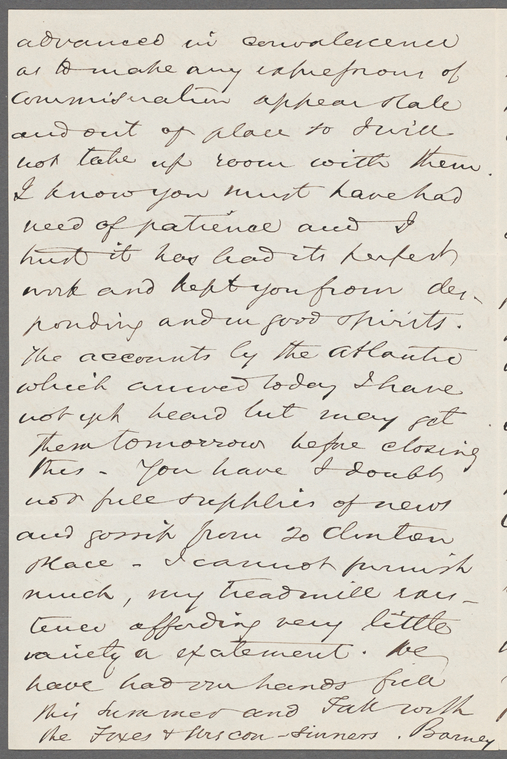 advanced in convalescence
as to make any expressions of
commiseration appear stale
and out of place so I will
not take up room with them.
I know you must have had
need of patience and I
trust it has had its perfect
work and kept you from des-
ponding and in good spirits.
The accounts by the Atlantic
which arrived today I have
not yet heard but may get
them tomorrow before closing
this - You have I doubt
not full supplies of news
and gossip from 20 Clinton
Place - I cannot furnish
much, my treadmill exis-
tence affording very little
variety or excitement. We
have had our hands full
this Summer and Fall with
the Foxes & Wiscon-sinners. Barney